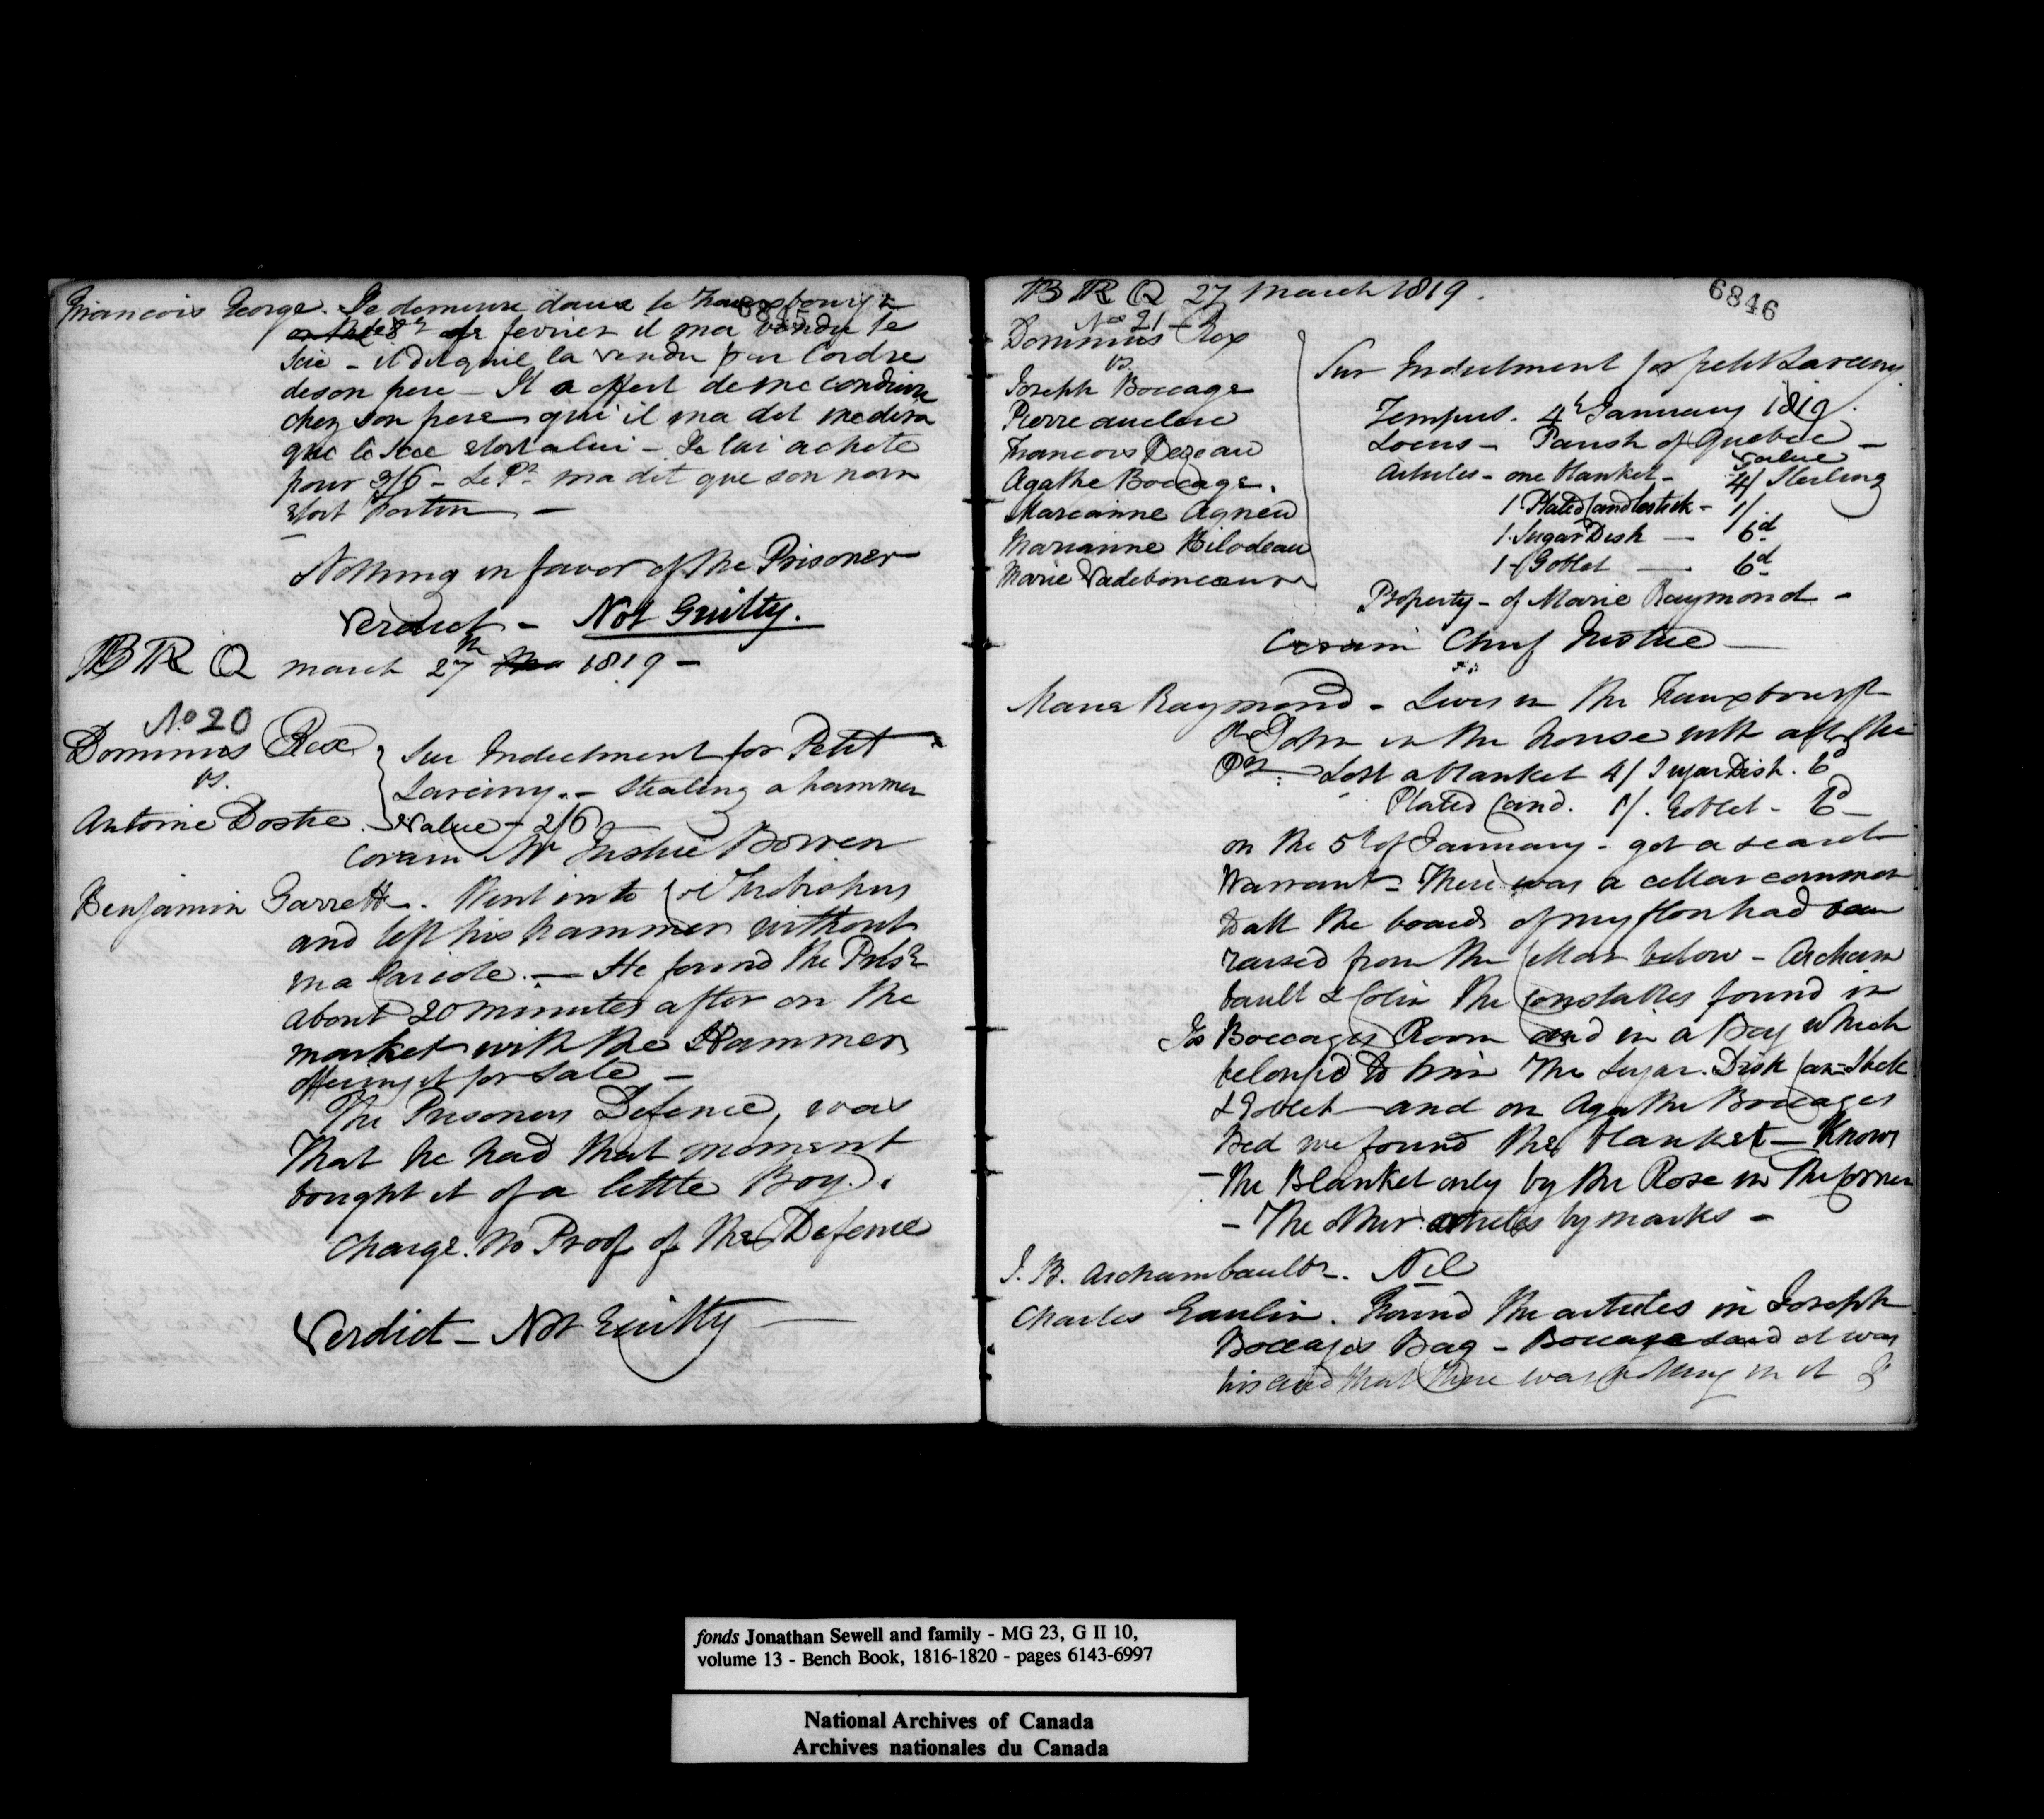 Francois George. Je demeure dans le Fauxbourg
6845
fevrier il ma vendu le
Scie - il dit quil la vendu par lordre
de son pere - Il a offert de me conduire
chez son pere qui il ma dit me dira
que le Scie etoit a lui - Je lai achete
pour 3/6 - Le Pr. ma dit que son nom
etoit Fortin -
Nothing in favor of the Prisoner
Verdict - Not Guilty.
BRQ march 27th 1819 -
No. 20
Dominus Rex
vs.
Antoine Dostie.
Sur Indictment for Petit
Larceny. - Stealing a hammer
Value - 2/6
Coram Mr Justice Bowen
Benjamin Garrett. Went into
and left his hammer without
in a Cariole. - He found the Prisr
about 20 minutes after on the
market with the Hammer
offering it for Sale -
The Prisoners Defence, was
That he had that moment
bought it of a little Boy.
Charge. No Proof of the Defence
Verdict - Not Guilty
BRQ 27 March 1819.
6846
No 21 -
Dominus Rex
vs.
Joseph Boccage
Pierre auclere
Francois Dezeau
Agathe Boccage.
Marianne Agneu
Marianne Bilodeau
Marie Vadeboncœur
Sur Indictment for petit Larceny
Tempus. 4th January 1819.
Locus - Parish of Quebec -
value
Articles - one blanket - 4/ Sterling
1 Plated Candlestick - 1/.
1. Sugar Dish - 6d
1 - Goblet - 6d
Property - of Marie Raymond -
Coram Chief Justice
Marie Raymond - Lives in the Fauxbourg
St John in the house with all the
Prs. - Lost a blanket 4/ Sugar Dish. 6d
Plated Cand. 1/. Goblet - 6d -
on the 5th of January - got a search
Warrant - There was a cellar common
to all the boards of my floor had been
raised from the Cellar below - Archam
bault & Colin the Constables found in
Jos Boccages Room and in a Bag which
belonged to him The Sugar Dish Can-Stick
& Goblet - and on Agathe Boccages
Bed we found the blanket - Knows
- The Blanket only by the Rose in The Corner
- The other articles by marks -
J. B. Archambault. Nil
Charles Gaulin. Found the articles in Joseph
Boccages Bag - Boccage said it was
his and that there was nothing in it
fonds Jonathan Sewell and family - MG 23, G II 10,
volume 13 - Bench Book, 1816-1820 - pages 6143-6997
National Archives of Canada
Archives nationales du Canada